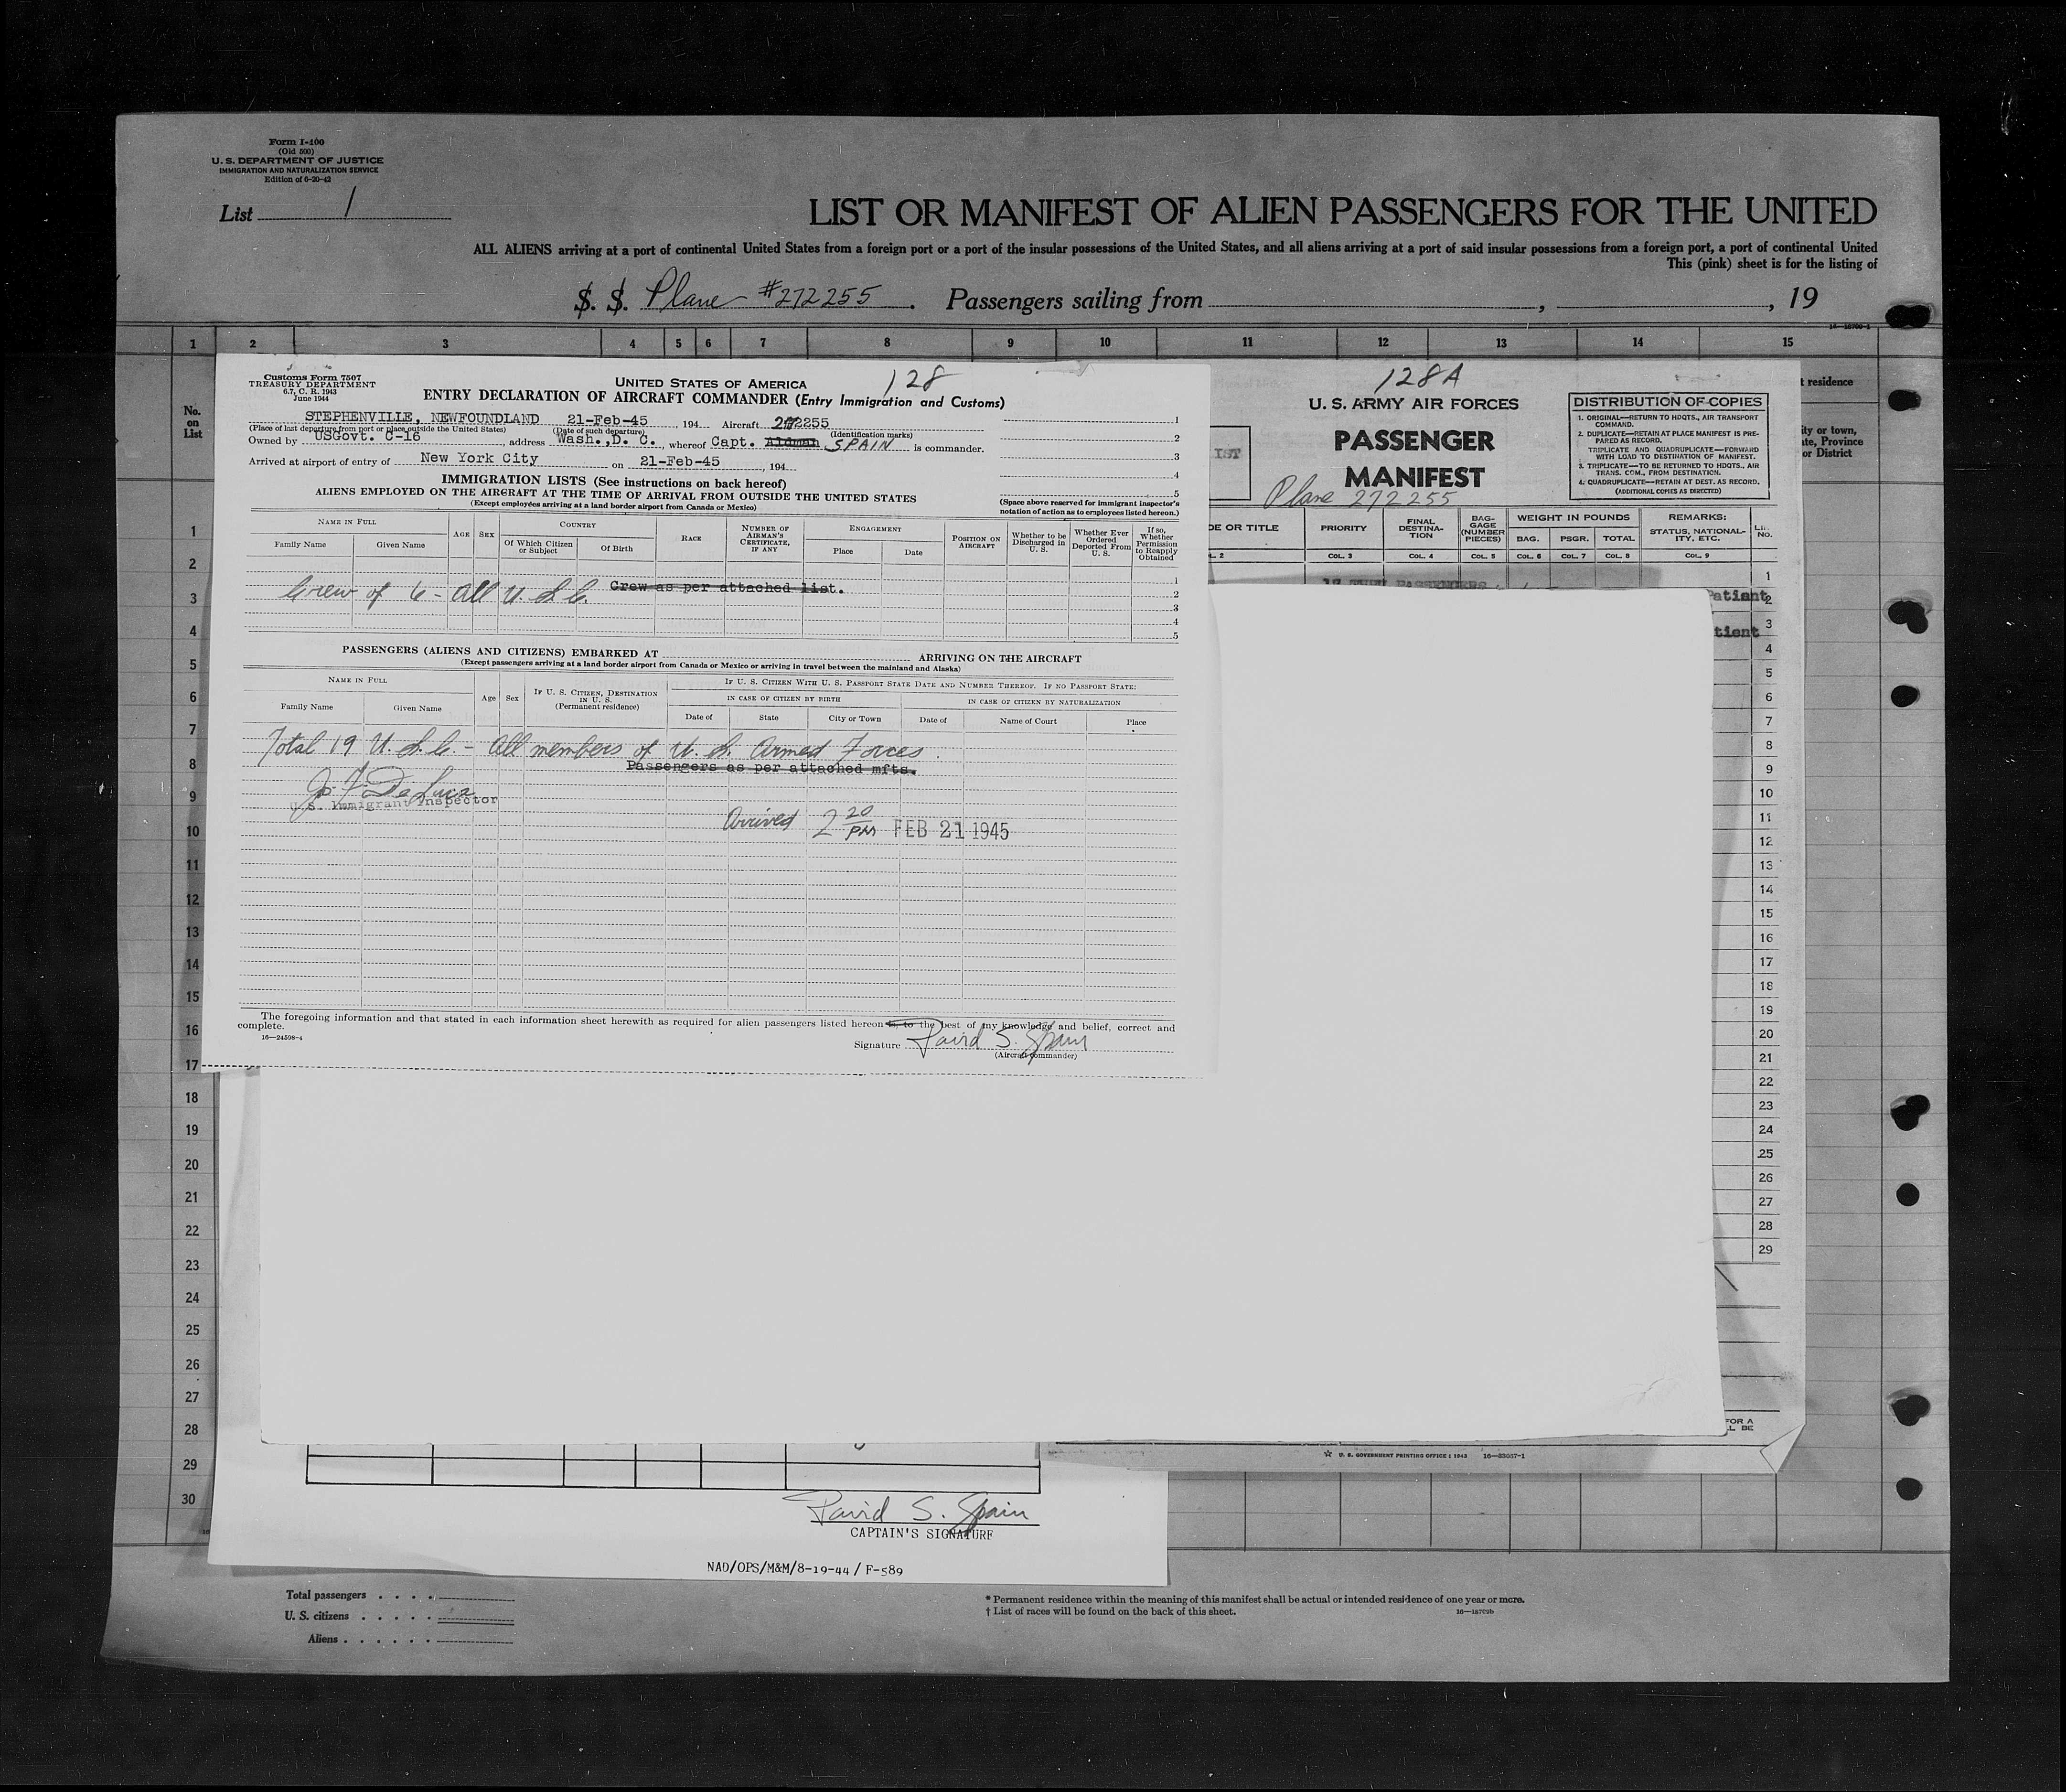 Form I-400
(Old 500)
U. S. DEPARTMENT OF JUSTICE
IMMIGRATION AND NATURALIZATION SERVICE
Edition of 6-20-42
List 1
LIST OR MANIFEST OF ALIEN PASSENGERS FOR THE UNITED
ALL ALIENS arriving at a port of continental United States from a foreign port or a port of the insular possessions of the United States, and all aliens arriving at a port of said insular possessions from a foreign port, a port of continental United
This (pink) sheet is for the listing of
S. S. Plane #272255 . Passengers sailing from , , 19
1 2 3 4 5 6 7 8 9 10 11 12 13 14 15
No.
on
List
residence
ity or town,
ate, Province
or District
Customs Form 7507
TREASURY DEPARTMENT
6.7, C. R. 1943
June 1944
UNITED STATES OF AMERICA
128
ENTRY DECLARATION OF AIRCRAFT COMMANDER (Entry Immigration and Customs)
STEPHENVILLE, NEWFOUNDLAND 21-Feb-45 , 194 Aircraft 272255
(Place of last departure from port or place outside the United States) (Date of such departure) (Identification marks)
Owned by USGovt. C-16 , address Wash., D. C. , whereof Capt. Aldman SPAIN is commander.
Arrived at airport of entry of New York City on 21-Feb-45 , 194
IMMIGRATION LISTS (See instructions on back hereof)
ALIENS EMPLOYED ON THE AIRCRAFT AT THE TIME OF ARRIVAL FROM OUTSIDE THE UNITED STATES
(Except employees arriving at a land border airport from Canada or Mexico)
1
2
3
4
5
(Space above reserved for immigrant inspector's
notation of action as to employees listed hereon.)
NAME IN FULL
Family Name Given Name
AGE SEX
COUNTRY
Of Which Citizen or Subject
Of Birth
RACE
NUMBER OF AIRMAN'S CERTIFICATE, IF ANY
ENGAGEMENT
Place Date
POSITION ON AIRCRAFT
Whether to be Discharged in U. S.
Whether Ever Ordered Deported From U. S.
If so, Whether Permission to Reapply Obtained
Crew of 6 - All U. S. C. Crew as per attached list.
1
2
3
4
5
PASSENGERS (ALIENS AND CITIZENS) EMBARKED AT ARRIVING ON THE AIRCRAFT
(Except passengers arriving at a land border airport from Canada or Mexico or arriving in travel between the mainland and Alaska)
NAME IN FULL
Family Name Given Name
Age Sex
IF U. S. CITIZEN, DESTINATION IN U. S.
(Permanent residence)
IF U. S. CITIZEN WITH U. S. PASSPORT STATE DATE AND NUMBER THEREOF. IF NO PASSPORT STATE:
IN CASE OF CITIZEN BY BIRTH IN CASE OF CITIZEN BY NATURALIZATION
Date of State City or Town Date of Name of Court Place
Total 19 U. S. C. - All members of U. S. Armed Forces
Passengers as per attached mfts.
J. F. DeLuca
U.S. Immigrant Inspector
Arrived 2 20 PM FEB 21 1945
The foregoing information and that stated in each information sheet herewith as required for alien passengers listed hereon is, to the best of my knowledge and belief, correct and
complete.
16—24598-4
Signature David S. Spain
(Aircraft commander)
128A
U. S. ARMY AIR FORCES
PASSENGER
MANIFEST
Plane 272255
IST
DISTRIBUTION OF COPIES
1. ORIGINAL—RETURN TO HDQTS., AIR TRANSPORT COMMAND.
2. DUPLICATE—RETAIN AT PLACE MANIFEST IS PREPARED AS RECORD.
TRIPLICATE AND QUADRUPLICATE—FORWARD WITH LOAD TO DESTINATION OF MANIFEST.
3. TRIPLICATE—TO BE RETURNED TO HDQTS., AIR TRANS. COM., FROM DESTINATION.
4. QUADRUPLICATE—RETAIN AT DEST. AS RECORD.
(ADDITIONAL COPIES AS DIRECTED)
DE OR TITLE PRIORITY FINAL DESTINATION BAGGAGE (NUMBER PIECES) WEIGHT IN POUNDS REMARKS: STATUS, NATIONALITY, ETC. LIN. NO.
BAG. PSGR. TOTAL
L. 2 COL. 3 COL. 4 COL. 5 COL. 6 COL. 7 COL. 8 COL. 9
PASSENGERS
1
Patient 2
tient 3
4
5
6
7
8
9
10
11
12
13
14
15
16
17
18
19
20
21
22
23
24
25
26
27
28
29
FOR A
L BE
☆ U. S. GOVERNMENT PRINTING OFFICE : 1943 16—35057-1
1
2
3
4
5
6
7
8
9
10
11
12
13
14
15
16
17
18
19
20
21
22
23
24
25
26
27
28
29
30
David S. Spain
CAPTAIN'S SIGNATURE
NAD/OPS/M&M/8-19-44 / F-589
Total passengers . . . .
U. S. citizens . . . . .
Aliens . . . . . .
* Permanent residence within the meaning of this manifest shall be actual or intended residence of one year or more.
† List of races will be found on the back of this sheet.